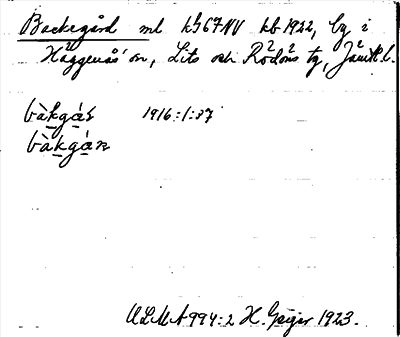 Backegård ml kG67NV kb 1922, by i
Häggenås sn, Lits och Rödöns tg, Jämtl. l.
bàkgás 1916:1:87
bàkgán
ULMA 994:2 H. Geijer 1923.